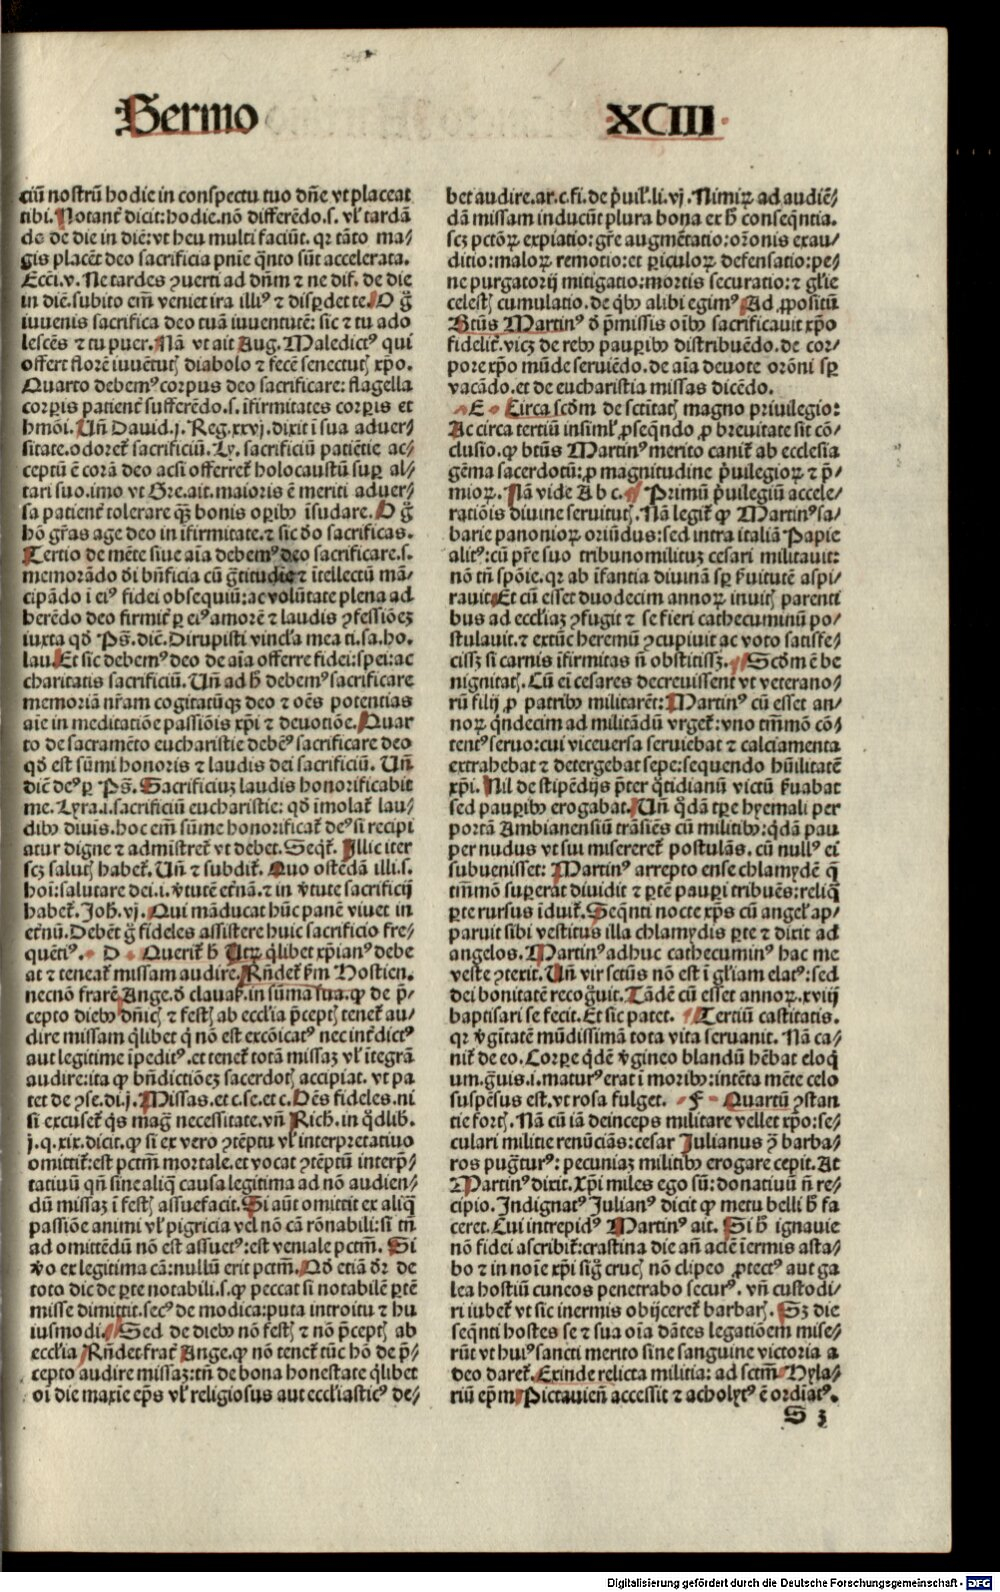 Sermo XCIII
ciū nostrū hodie in conspectu tuo dn̄e vt placeat
tibi. Notant᷑ dicit: hodie. nō differēdo. s. vl᷑ tardā
do de die in diē: vt heu multi faciūt. qꝛ tāto ma/
gis placēt deo sacrificia pnīe qn̄to sūt accelerata.
Ecci. v. Ne tardes ꝯuerti ad dn̄m ⁊ ne dif. de die
in diē. subito em̄ veniet ira illiꝰ ⁊ disꝑdet te. O ḡ
iuuenis sacrifica deo tuā iuuentutē: sic ⁊ tu ado
lescēs ⁊ tu puer. Nā vt ait Aug. Maledictꝰ qui
offert florē iuuētutꝭ diabolo ⁊ fecē senectutꝭ xp̄o.
Quarto debemꝰ corpus deo sacrificare: flagella
corꝑis patient᷑ sufferēdo. s. īfirmitates corꝑis et
hmōi. Un̄ Dauid. j. Reg. xxvj. dixit ī sua aduer/
sitate. odoret᷑ sacrificiū. Ly. sacrificiū patiētie ac/
ceptū ē corā deo acsi offerret᷑ holocaustū suꝑ al/
tari suo. imo vt Gre. ait. maioris ē meriti aduer/
sa patient᷑ tolerare qꝫ bonis oꝑibꝰ īsudare. O ḡ
hō gr̄as age deo in īfirmitate. ⁊ sic do sacrificas.
Tertio de mēte siue aīa debemꝰ deo sacrificare. s.
memorādo dī bn̄ficia cū ḡtitudīe ⁊ ītellectū mā/
cipādo ī eiꝰ fidei obsequiū: ac volūtate plena ad
herēdo deo firmit᷑ ꝑ eiꝰ amorē ⁊ laudis ꝯfessiōeꝫ
iuxta qd̄ Ps̄. diē. Dirupisti vincl᷑a mea ti. sa. ho.
lau. Et sic debemꝰ deo de aīa offerre fidei: spei: ac
charitatis sacrificiū. Un̄ ad h̄ debemꝰ sacrificare
memoriā nr̄am cogitatūqꝫ deo ⁊ oēs potentias
aīe in meditatiōe passiōis xp̄i ⁊ deuotiōe. Quar
to de sacramēto eucharistie debēꝰ sacrificare deo
qd̄ est sūmi honoris ⁊ laudis dei sacrificiū. Un̄
diē deꝰ ꝑ Ps̄. Sacrificiuꝫ laudis honorificabit
me. Lyra. i. sacrificiū eucharistie: qd̄ imolat᷑ lau/
dibꝰ diuis. hoc em̄ sūme honorificat᷑ deꝰ si recipi
atur digne ⁊ admīstret᷑ vt debet. Seqt᷑. Illic iter
scꝫ salutꝭ habet᷑. Un̄ ⁊ subdit᷑. Quo ostēdā illi. s.
hoī: salutare dei. i. v̄tutē et̄nā. ⁊ in v̄tute sacrificij
habet᷑. Joh̄. vj. Qui māducat hūc panē viuet in
et̄nū. Debēt ḡ fideles assistere huic sacrificio fre/
quētiꝰ. D Querit᷑ h̄ Utꝝ q̄libet xp̄ianꝰ debe
at ⁊ teneat᷑ missam audire. Rn̄det᷑ ẜm Hostien.
necnō frarē Ange. d̄ clauaẜ. in sūma sua. ꝙ de p̄/
cepto diebꝰ dn̄icꝭ ⁊ festꝭ ab eccl᷑ia p̄ceptꝭ tenet᷑ au/
dire missam q̄libet q̄ nō est excōicatꝰ nec int᷑dictꝰ
aut legitime īpeditꝰ. et tenet᷑ totā missaꝫ vl᷑ ītegrā
audire: ita ꝙ bn̄dictiōeꝫ sacerdotꝭ accipiat. vt pa
tet de ꝯse. di. j. Missas. et c. se. et c. Oēs fideles. ni
si excuset᷑ q̄s maḡ necessitate. vn̄ Rich. in qd̄lib.
j. q. xix. dicit. ꝙ si ex vero ꝯtēptu vl᷑ interpretatiuo
omittit᷑: est pctm̄ mortale. et vocat ꝯtēptū interp̄/
tatiuū qn̄ sine aliq̄ causa legitima ad nō audien/
dū missaꝫ ī festꝭ assuefacit. Si aūt omittit ex aliq̄
passiōe animi vl᷑ pigricia vel nō cā rōnabili: si tn̄
ad omittēdū nō est assuetꝰ: est veniale pctm̄. Si
v̄o ex legitima cā: nullū erit pctm̄. Qd̄ etiā dr̄ de
toto dic de ꝑte notabili. s. ꝙ peccat si notabilē ꝑtē
misse dimittit. secꝰ de modica: puta introitu ⁊ hu
iusmodi. Sed de diebꝰ nō festꝭ ⁊ nō p̄ceptꝭ ab
eccl᷑ia Rn̄det frat᷑ Ange. ꝙ nō tenet᷑ tūc hō de p̄/
cepto audire missaꝫ: tn̄ de bona honestate q̄libet
oī die maxie ep̄s vl᷑ religiosus aut eccl᷑iasticꝰ de/
bet audire. ar. c. fi. de p̄uil᷑. li. vj. Nimiꝝ ad audiē/
dā missam inducūt plura bona ex h̄ conseqn̄tia.
scꝫ pctōꝝ expiatio: gr̄e augmētatio: or̄onis exau/
ditio: maloꝝ remotio: et ꝑiculoꝝ defensatio: pe/
ne purgatorij mitigatio: mortis securatio: ⁊ gl᷑ie
celestꝭ cumulatio. de q̄bꝰ alibi egimꝰ. Ad ꝓpositū
Btūs Martinꝰ d̄ p̄missis oībꝰ sacrificauit xp̄o
fidelit᷑. vicꝫ de rebꝰ pauꝑibꝰ distribuēdo. de cor/
pore xp̄o mūde seruiēdo. de aīa deuote or̄oni sꝑ
vacādo. et de eucharistia missas dicēdo.
E Circa scd̄m de scti̅tatꝭ magno priuilegio:
Ac circa tertiū insiml᷑ ꝓseqn̄do ꝓ breuitate sit cō/
clusio. ꝙ btūs Martinꝰ merito canit᷑ ab ecclesia
gēma sacerdotū: ꝓ magnitudine p̄uilegioꝝ ⁊ p̄/
mioꝝ. Nā vide A b c. Primū p̄uilegiū accele/
ratiōis diuine seruitutꝭ. Nā legit᷑ ꝙ Martinꝰ sa/
barie panonioꝝ oriūdus: sed intra italiā Papie
alitꝰ: cū pr̄e suo tribuno milituꝫ cesari militauit:
nō tn̄ spōte. qꝛ ab īfantia diuinā sꝑ ẜuitutē aspi/
rauit. Et cū esset duodecim annoꝝ inuitꝭ parenti
bus ad eccl᷑iaꝫ ꝯfugit ⁊ se fieri cathecuminū po/
stulauit. ⁊ extūc heremū ꝯcupiuit ac voto satisfe/
cissꝫ si carnis īfirmitas n̄ obstitissꝫ. Scd̄m ē be
nignitatꝭ. Cū eī cesares decreuissent vt veterano/
rū filij ꝓ patribꝰ militarēt: Martinꝰ cū esset an/
noꝝ qn̄decim ad militādū vrget᷑: vno tm̄mō cō/
tentꝰ seruo: cui viceuersa seruiebat ⁊ calciamenta
extrahebat ⁊ detergebat sepe: sequendo hūilitatē
xp̄i. Nil de stipēdijs p̄ter q̄tidianū victū ẜuabat
sed pauꝑibꝰ erogabat. Un̄ q̄dā tꝑe hyemali per
portā Ambianensiū trāsiēs cū militibꝰ: q̄dā pau
per nudus vt sui miserēret᷑ postulās. cū nullꝰ eī
subuenisset: Martinꝰ arrepto ense chlamydē q̄
tm̄mō suꝑerat diuidit ⁊ ꝑtē pauꝑi tribuēs: reliq̄
ꝑte rursus īduit᷑. Seqn̄ti nocte xp̄s cū angelꝭ ap/
paruit sibi vestitus illa chlamydis ꝑte ⁊ dixit ad
angelos. Martinꝰ adhuc cathecuminꝰ hac me
veste ꝯtexit. Un̄ vir sctūs nō est ī gl᷑iam elatꝰ: sed
dei bonitatē recoḡuit. Tādē cū esset annoꝝ. xviij
baptisari se fecit. Et sic patet. Tertiū castitatis.
qꝛ v̄gitatē mūdissimā tota vita seruauit. Nā ca/
nit᷑ de eo. Corꝑe q̄dē v̄gineo blandū hēbat eloq̄
um. ḡuis. i. maturꝰ erat ī moribꝰ: intēta mēte celo
suspēsus est. vt rosa fulget. F Quartū ꝯstan
tie fortꝭ. Nā cū iā deinceps militare vellet xp̄o: se/
culari militie renūciās: cesar Julianus ꝯ̄ barba/
ros puḡturꝰ: pecuniaꝫ militibꝰ erogare cepit. At
Martinꝰ dixit. Xp̄i miles ego sū: donatiuū n̄ re/
cipio. Indignatꝰ Julianꝰ dicit ꝙ metu belli h̄ fa
ceret. Cui intrepidꝰ Martinꝰ ait. Si h̄ ignauie
nō fidei ascribit᷑: crastina die an̄ aciē īermis asta/
bo ⁊ in noīe xp̄i siḡ crucꝭ nō clipeo ꝓtectꝰ aut ga
lea hostiū cuneos penetrabo securꝰ. vn̄ custodi/
ri iubet᷑ vt sic inermis obijceret᷑ barbarꝭ. Sꝫ die
seqn̄ti hostes se ⁊ sua oīa dātes legatiōem mise/
rūt vt huiꝰ sancti merito sine sanguine victoria a
deo daret᷑. Exinde relicta militia: ad sctm̄ Hyla/
riū ep̄m Pictauien̄ accessit ⁊ acholytꝰ ē ordīatꝰ.
S 3
Digitalisierung gefördert durch die Deutsche Forschungsgemeinschaft - DFG